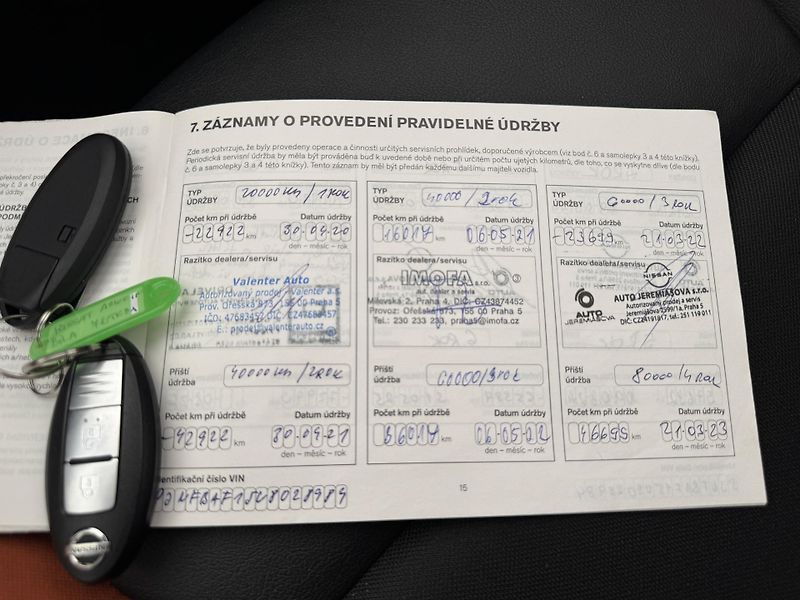 7. ZÁZNAMY O PROVEDENÍ PRAVIDELNÉ ÚDRŽBY
Zde se potvrzuje, že byly provedeny operace a činnosti určitých servisních prohlídek, doporučené výrobcem (viz bod č. 6 a samolepky 3 a 4 této knížky).
Periodická servisní údržba by měla být prováděna buď k uvedené době nebo při určitém počtu ujetých kilometrů, dle toho, co se vyskytne dříve (dle bodu
č. 6 a samolepky 3 a 4 této knížky). Tento záznam by měl být předán každému dalšímu majiteli vozidla.
TYP ÚDRŽBY 20000 km / 1 rok
Počet km při údržbě Datum údržby
-22922 km 30-04-20
den – měsíc – rok
Razítko dealera/servisu
Valenter Auto
Autorizovaný prodej Valenter a.s
Prov. Ořešská 873, 155 00 Praha 5
E.: prodej@valenterauto.cz
Příští údržba 40000 km / 2 rok
Počet km při údržbě Datum údržby
-42922 km 30-04-21
den – měsíc – rok
TYP ÚDRŽBY 40000 / 2 rok
Počet km při údržbě Datum údržby
16017 km 06-05-21
den – měsíc – rok
Razítko dealera/servisu
IMOFA s.r.o.
aut. dealer a servis
Praha 4, DIČ: CZ43874452
Provoz: Ořešská 873, 155 00 Praha 5
Tel.: 230 233 233, praha5@imofa.cz
Příští údržba 60000/3 rok
Počet km při údržbě Datum údržby
36017 km 06-05-22
den – měsíc – rok
TYP ÚDRŽBY 60000 / 3 rok
Počet km při údržbě Datum údržby
km 21-03-22
den – měsíc – rok
Razítko dealera/servisu
NISSAN
AUTO JEREMIÁŠOVA
AUTO JEREMIÁŠOVA s.r.o.
Autorizovaný prodej a servis
Jeremiášova 2599/1a, Praha 5
tel.: 251 119 011
Příští údržba 80000 / 4 rok
Počet km při údržbě Datum údržby
km 21-03-23
den – měsíc – rok
Identifikační číslo VIN
15
NISSAN